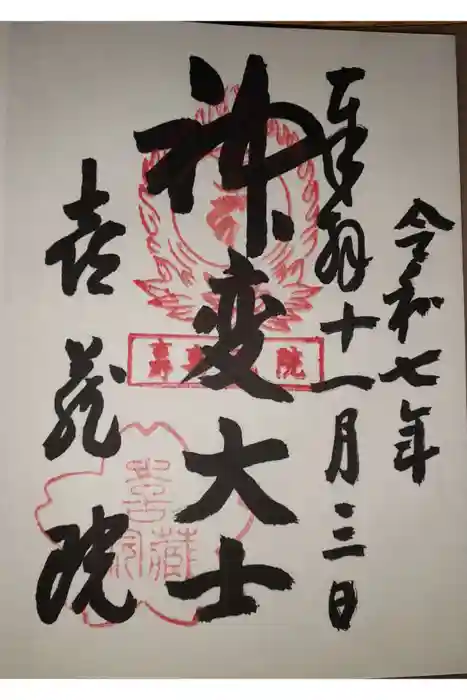 令和七年
奉拝十一月三日
神変大士
喜蔵院